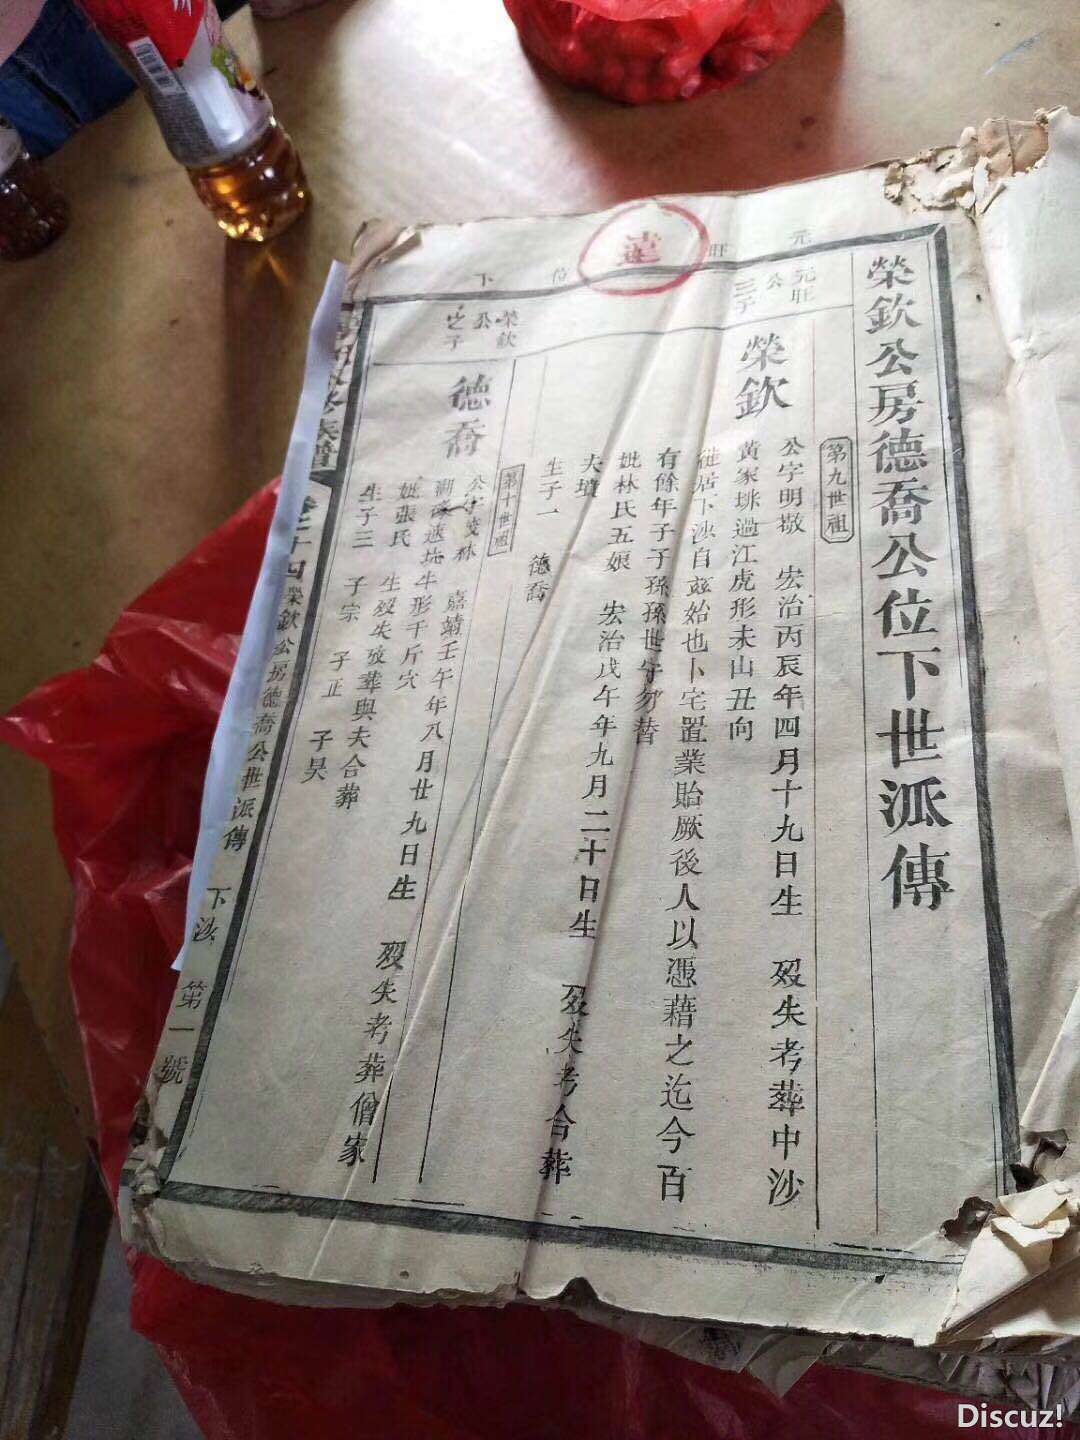 榮欽公房德喬公位下世派傳
元旺
位
下
元旺
公
三子
第九世祖
榮欽
公字明敬 宏治丙辰年四月十九日生 歿失考葬中沙
黃家垅過江虎形未山丑向
徙居下沙自玆始也卜宅置業貽厥後人以憑藉之迄今百
有餘年子子孫孫世守勿替
妣林氏五娘 宏治戊午年九月二十日生 歿失考合葬
夫墳
生子一 德喬
榮欽
公
之子
第十世祖
德喬
公字茂林 嘉靖壬午年八月廿九日生 歿失考葬僧家
牛形千斤穴
妣張氏 生歿失攷葬與夫合葬
生子三 子宗 子正 子昊
修族譜
卷之十四 榮欽公房德喬公世派傳 下沙 第一號
Discuz!